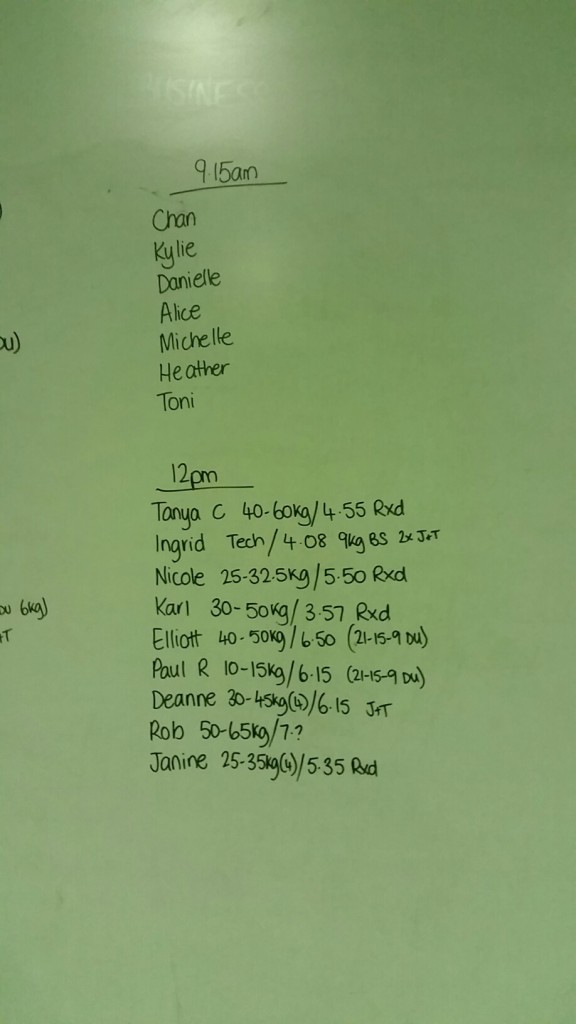 BUSINESS
9.15am
Chan
Kylie
Danielle
Alice
Michelle
Heather
Toni
DU)
12pm
Tanya C 40-60kg/4.55 Rxd
Ingrid Tech/4.08 9kg BS 2x J+T
Nicole 25-32.5kg/5.50 Rxd
Karl 30-50kg/3.57 Rxd
DU 6kg)
Elliott 40-50kg/6.50 (21-15-9 DU)
+T
Paul R 10-15kg/6.15 (21-15-9 DU)
Deanne 30-45kg(4)/6.15 J+T
Rob 50-65kg/7.?
Janine 25-35kg(4)/5.35 Rxd